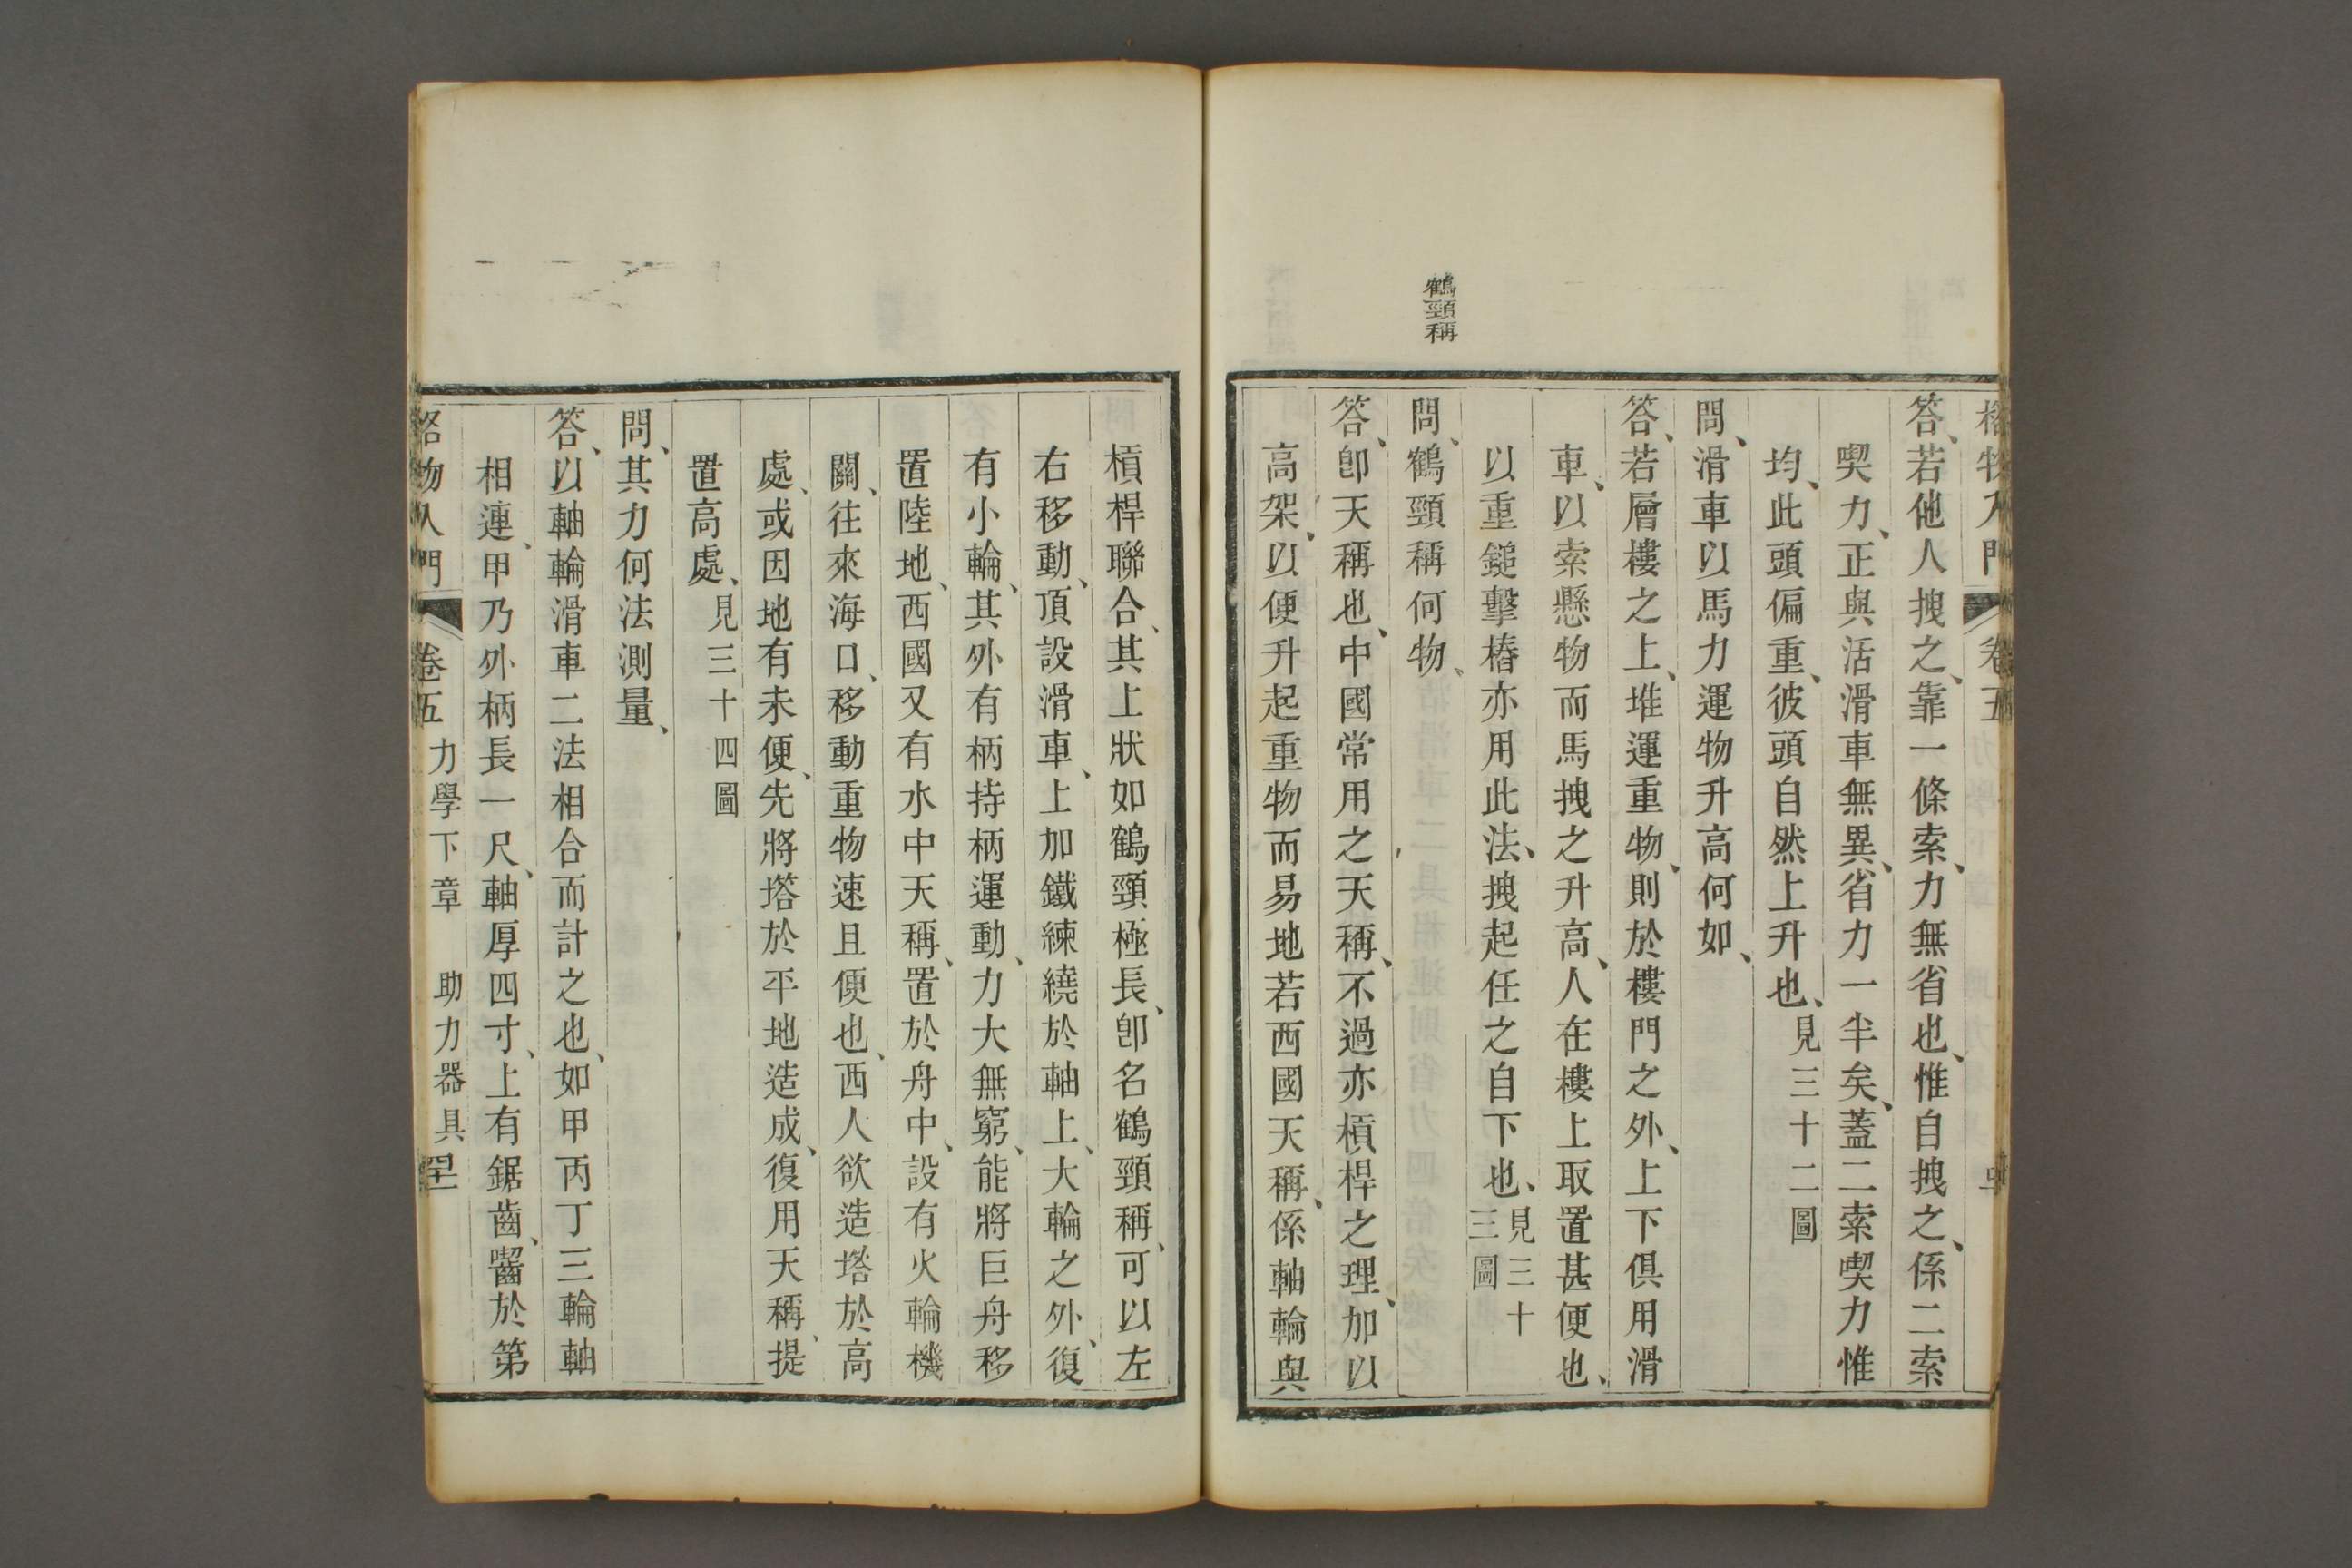 格物入門 卷五
答、若他人拽之、靠一條索、力無省也、惟自拽之、係二索
喫力、正與活滑車無異、省力一半矣、蓋二索喫力惟
均、此頭偏重、彼頭自然上升也、見三十二圖
問、滑車以馬力運物升高何如、
答、若層樓之上、堆運重物、則於樓門之外、上下俱用滑
車、以索懸物而馬拽之升高、人在樓上取置甚便也、
以重鎚擊樁亦用此法、拽起任之自下也、見三十
三圖
鶴頸稱
問、鶴頸稱何物、
答、卽天稱也、中國常用之天稱、不過亦槓桿之理、加以
高架、以便升起重物而易地若西國天稱、係軸輪與
槓桿聯合、其上狀如鶴頸極長、卽名鶴頸稱、可以左
右移動、頂設滑車、上加鐵練繞於軸上、大輪之外、復
有小輪、其外有柄持柄運動、力大無窮、能將巨舟移
置陸地、西國又有水中天稱、置於舟中、設有火輪機
關、往來海口、移動重物速且便也、西人欲造塔於高
處、或因地有未便、先將塔於平地造成、復用天稱、提
置高處、見三十四圖
問、其力何法測量、
答、以軸輪滑車二法相合而計之也、如甲丙丁三輪軸
相連、甲乃外柄長一尺、軸厚四寸、上有鋸齒、齧於第
格物入門 卷五 力學下章 助力器具